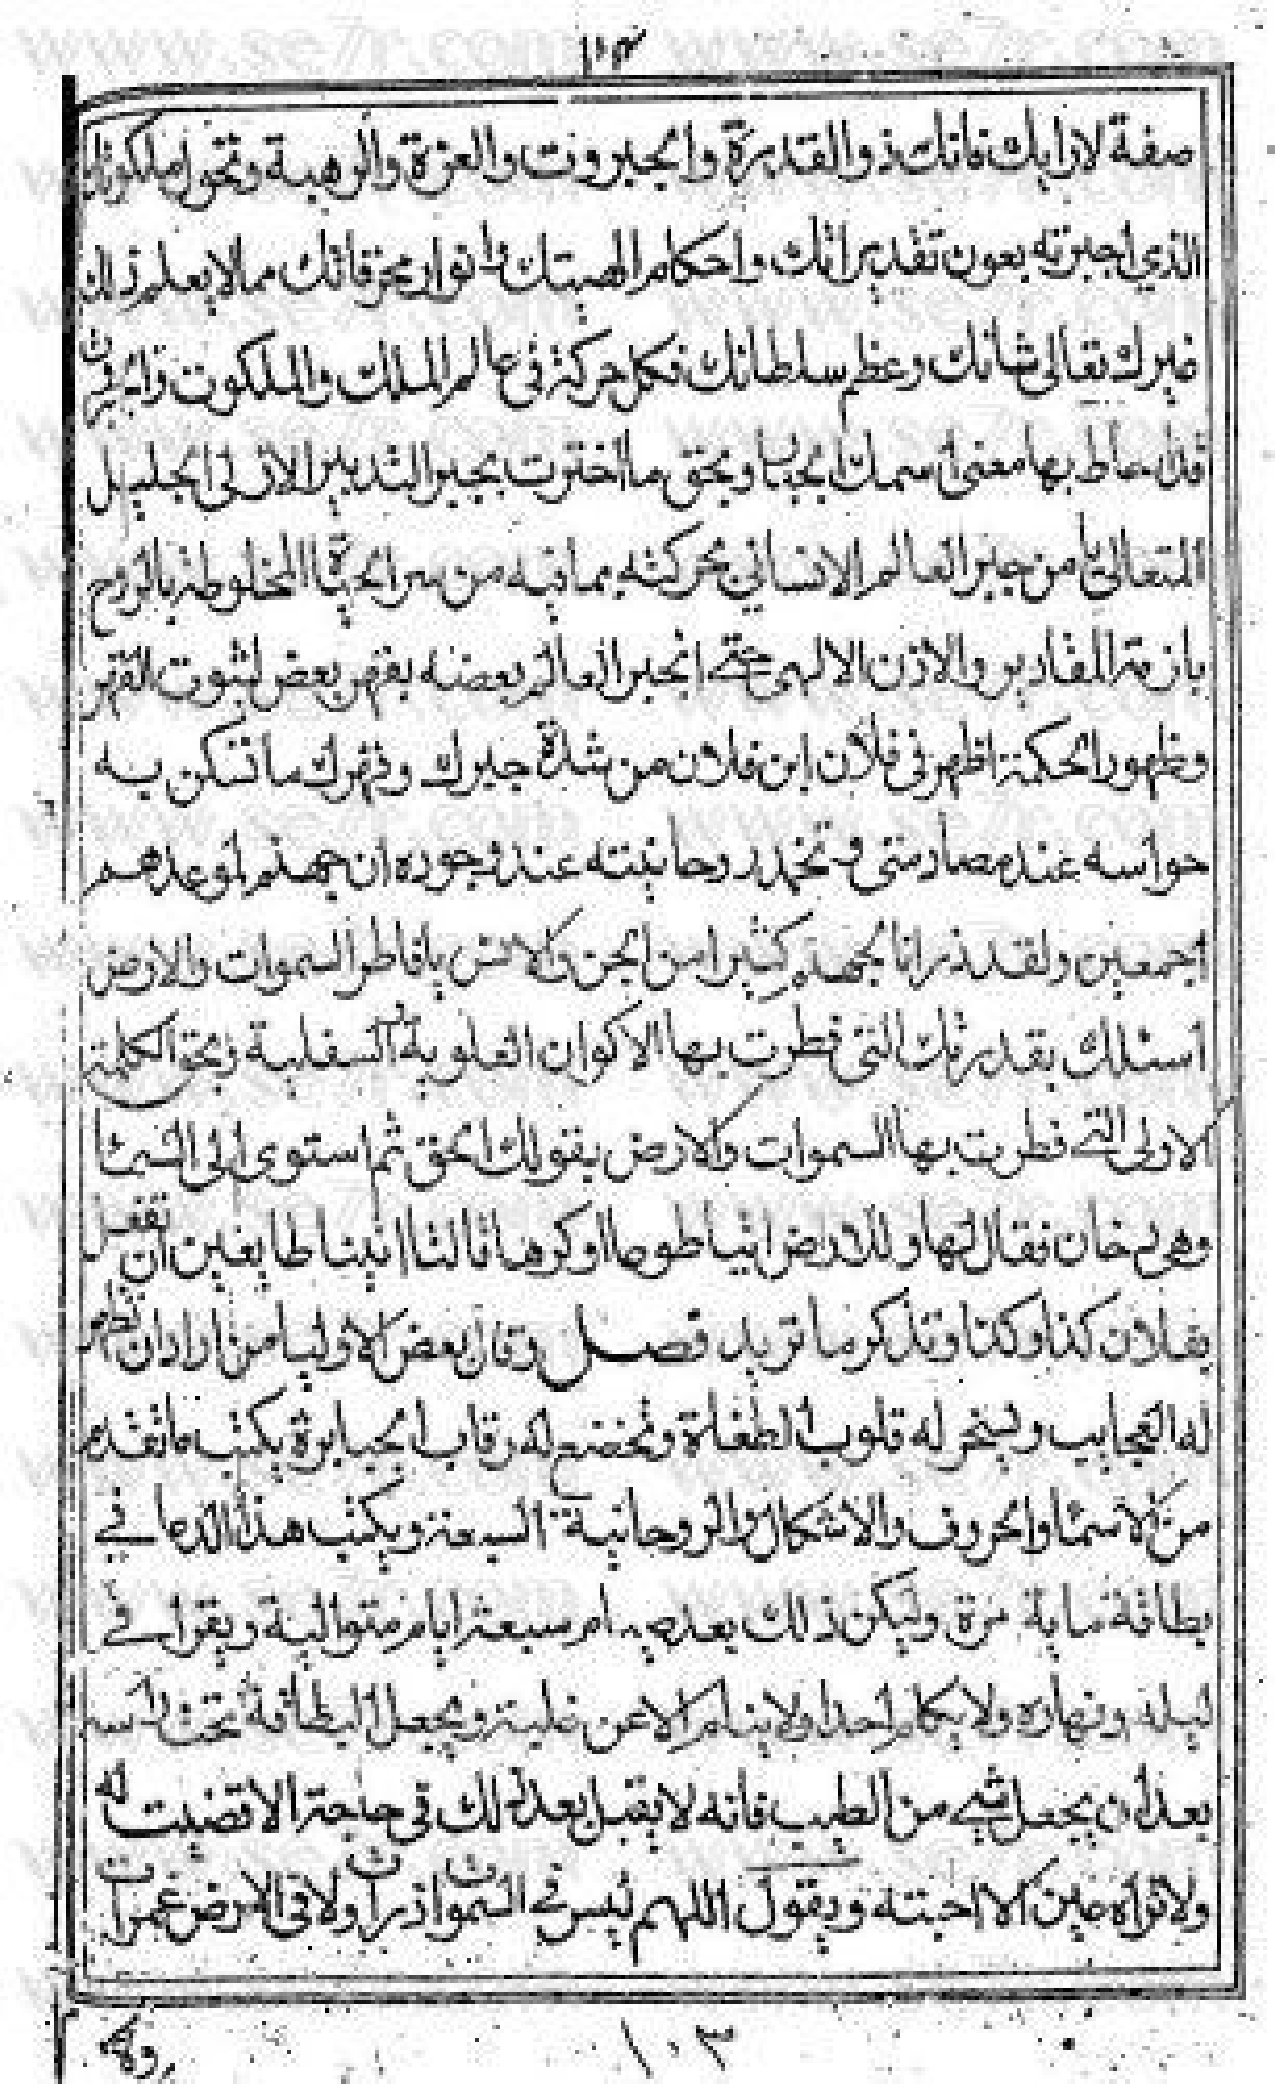 صفة لازابك فانك ذو القدرة والجبروت والعزة والرهبة وتحول ملكوتك
الذي اجبرته بعون تقديراتك واحكام انوار مما لا يعلم ذلك
غيرك تعالى شانك وعظم سلطانك فكل حركة في عالم الملك والملكوت
احاط بها معنى اسمك الجبار وبحق ما اخترت بجبر التدبير الازلي الجليل
المتعالي من جبر العالم الانساني بحركته بما فيه من سر المخلوطة بالروح
بازمة المقادير والاذن الالهي حتى انجبر العالم بعضه بقهر بعض لثبوت القهر
وظهور الحكمة اظهر في فلان ابن فلان من شدة جبرك وقهرك ما تسكن به
حواسه عند مصادمتي وتخمد روحانيته عند وجوده ان جهنم لموعدهم
اجمعين ولقد ذرانا لجهنم كثيرا من الجن والانس يا فاطر السموات والارض
اسئلك بقدرتك التي فطرت بها الاكوان العلوية والسفلية وبحق الكلمة
الاولى التي فطرت بها السموات والارض بقولك الحق ثم استوى الى السما
وهي دخان فقال لها وللارض ائتيا طوعا او كرها قالتا اتينا طايعين ان تفعل
بفلان كذا وكذا وتذكر ما تريد فصل وقال بعض الاوليا من اراد ان تظهر
له العجايب ويسخر له قلوب الطغاة وتخضع له رقاب الجبابرة يكتب ما تقدم
من الاسما والحروف والاشكال والروحانية السبعة ويكتب هذا الدعا في
بطاقة ماية مرة وليكن ذلك بعد صيام سبعة ايام متوالية ويقرا في
ليله ونهاره ولا يكلم احدا ولا ينام الا عن غلبة ويجعل البطاقة تحت راسه
بعد ان يجعل شي من الطيب فانه لا يقبل بعد ذلك في حاجة الا قضيت له
ولا تراه عين الا احبته ويقول اللهم ليس في السموات ذرات ولا في الارض غمرات
١٠٣